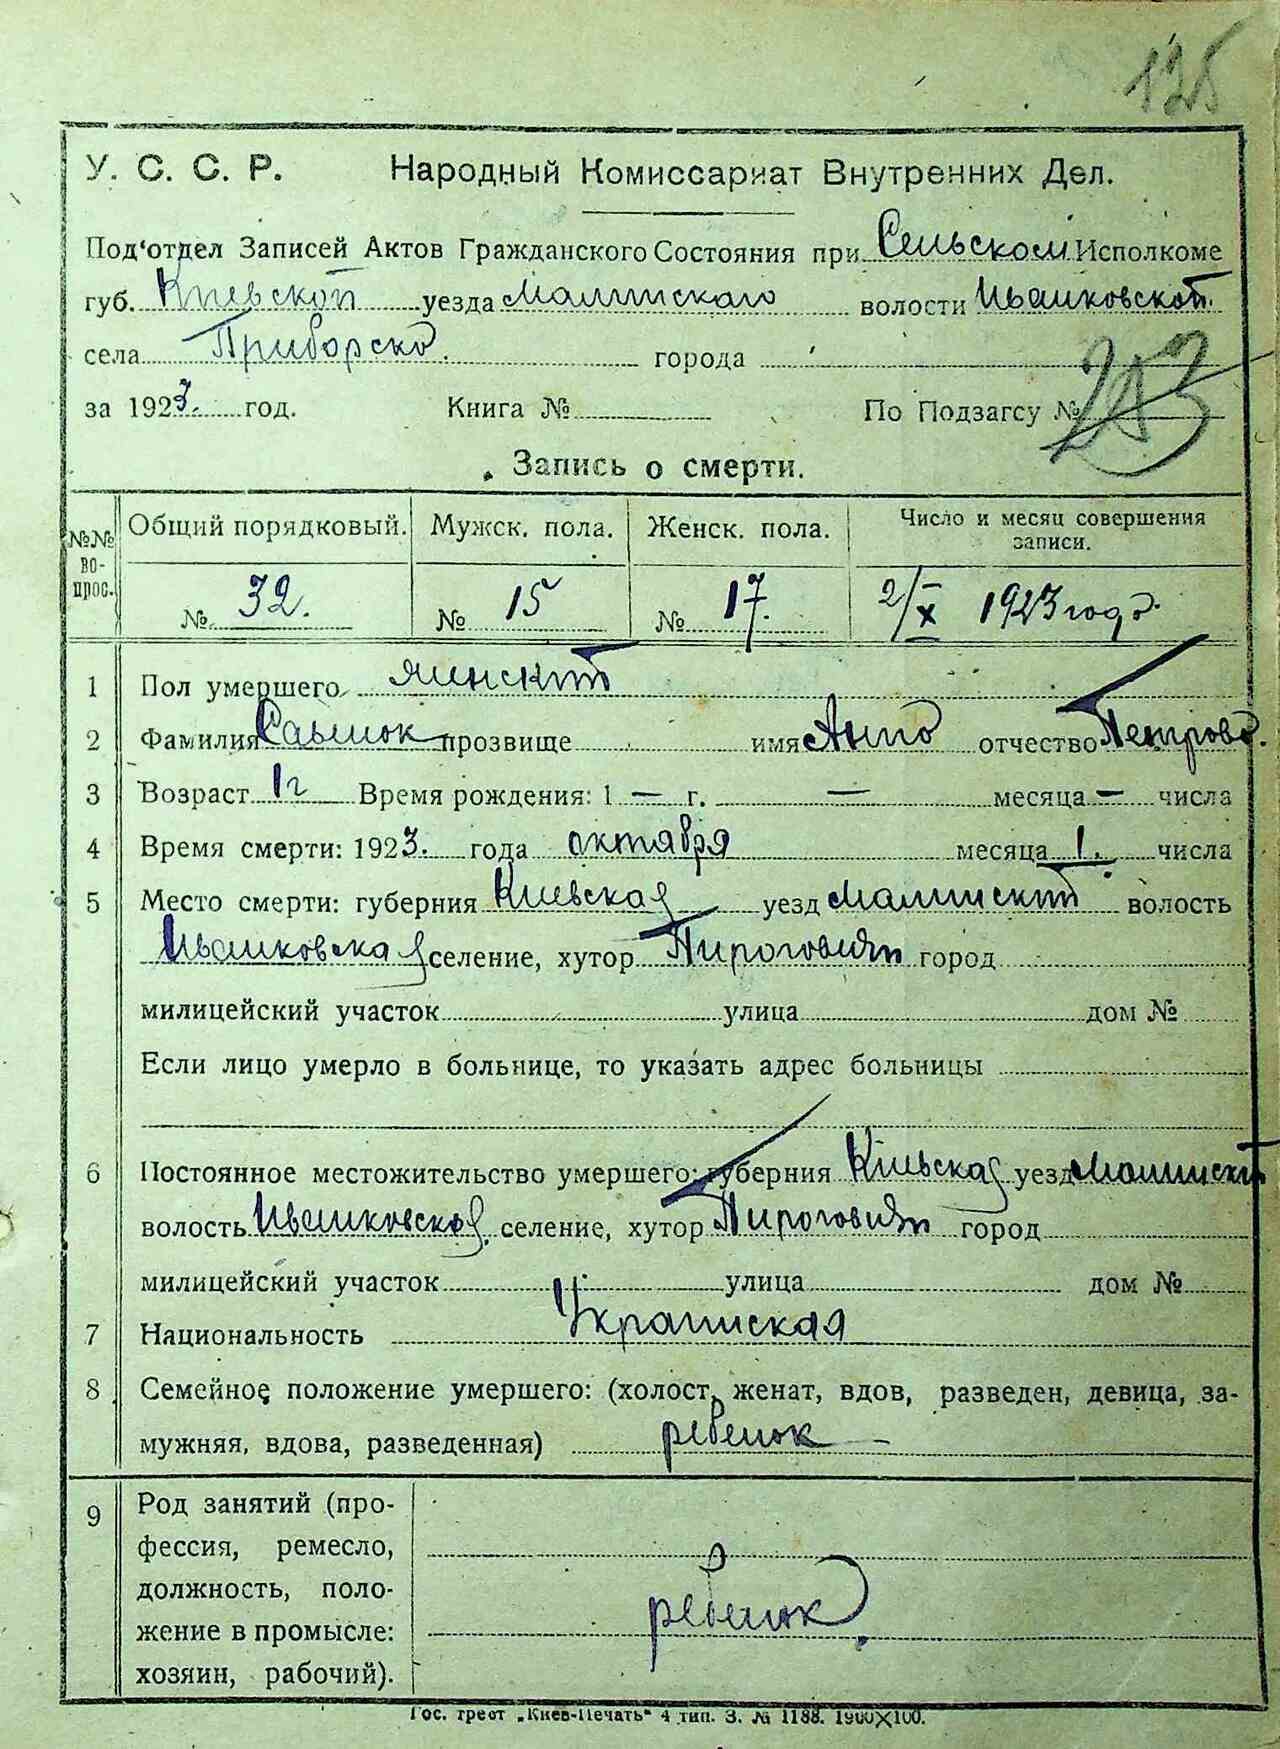 125
У. С. С. Р. Народный Комиссариат Внутренних Дел.
Под'отдел Записей Актов Гражданского Состояния при Сельском Исполкоме
губ. Киевской уезда Малинскаго волости Иванковской
села Приборско города
за 1923. год. Книга № По Подзагсу № 253
Запись о смерти.
№№ вопрос. Общий порядковый. Мужск. пола. Женск. пола. Число и месяц совершения записи.
№ 32. № 15 № 17. 2/X 1923 года.
1 Пол умершего женский
2 Фамилия Савенок прозвище имя Анна отчество Петрова.
3 Возраст 1 г Время рождения: 1 — г. — месяца — числа
4 Время смерти: 1923. года октября месяца 1. числа
5 Место смерти: губерния Киевская уезд Малинский волость
Иванковская селение, хутор город
милицейский участок улица дом №
Если лицо умерло в больнице, то указать адрес больницы
6 Постоянное местожительство умершего: губерния Киевская уезд Малинский
волость Иванковская селение, хутор город
милицейский участок улица дом №
7 Национальность Украинская
8 Семейное положение умершего: (холост, женат, вдов, разведен, девица, за-
мужняя, вдова, разведенная) ребенок —
9 Род занятий (про-
фессия, ремесло,
должность, поло-
жение в промысле:
хозяин, рабочий).
ребенок.
Гос. трест „Киев-Печать" 4 тип. З. № 1188. 1900×100.